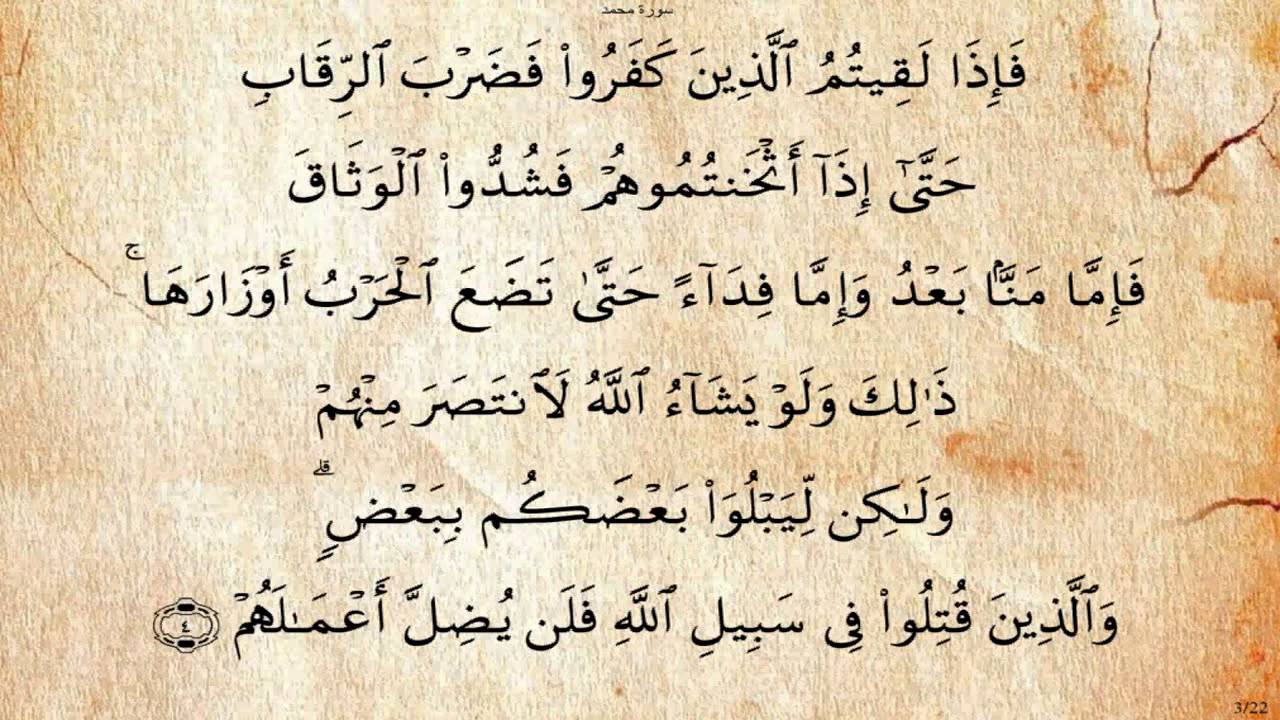 سورة محمد
فَإِذَا لَقِيتُمُ ٱلَّذِينَ كَفَرُوا۟ فَضَرْبَ ٱلرِّقَابِ
حَتَّىٰٓ إِذَآ أَثْخَنتُمُوهُمْ فَشُدُّوا۟ ٱلْوَثَاقَ
فَإِمَّا مَنًّۢا بَعْدُ وَإِمَّا فِدَآءً حَتَّىٰ تَضَعَ ٱلْحَرْبُ أَوْزَارَهَا ۚ
ذَٰلِكَ وَلَوْ يَشَآءُ ٱللَّهُ لَٱنتَصَرَ مِنْهُمْ
وَلَـٰكِن لِّيَبْلُوَا۟ بَعْضَكُم بِبَعْضٍ ۗ
وَٱلَّذِينَ قُتِلُوا۟ فِى سَبِيلِ ٱللَّهِ فَلَن يُضِلَّ أَعْمَـٰلَهُمْ ٤
3/22